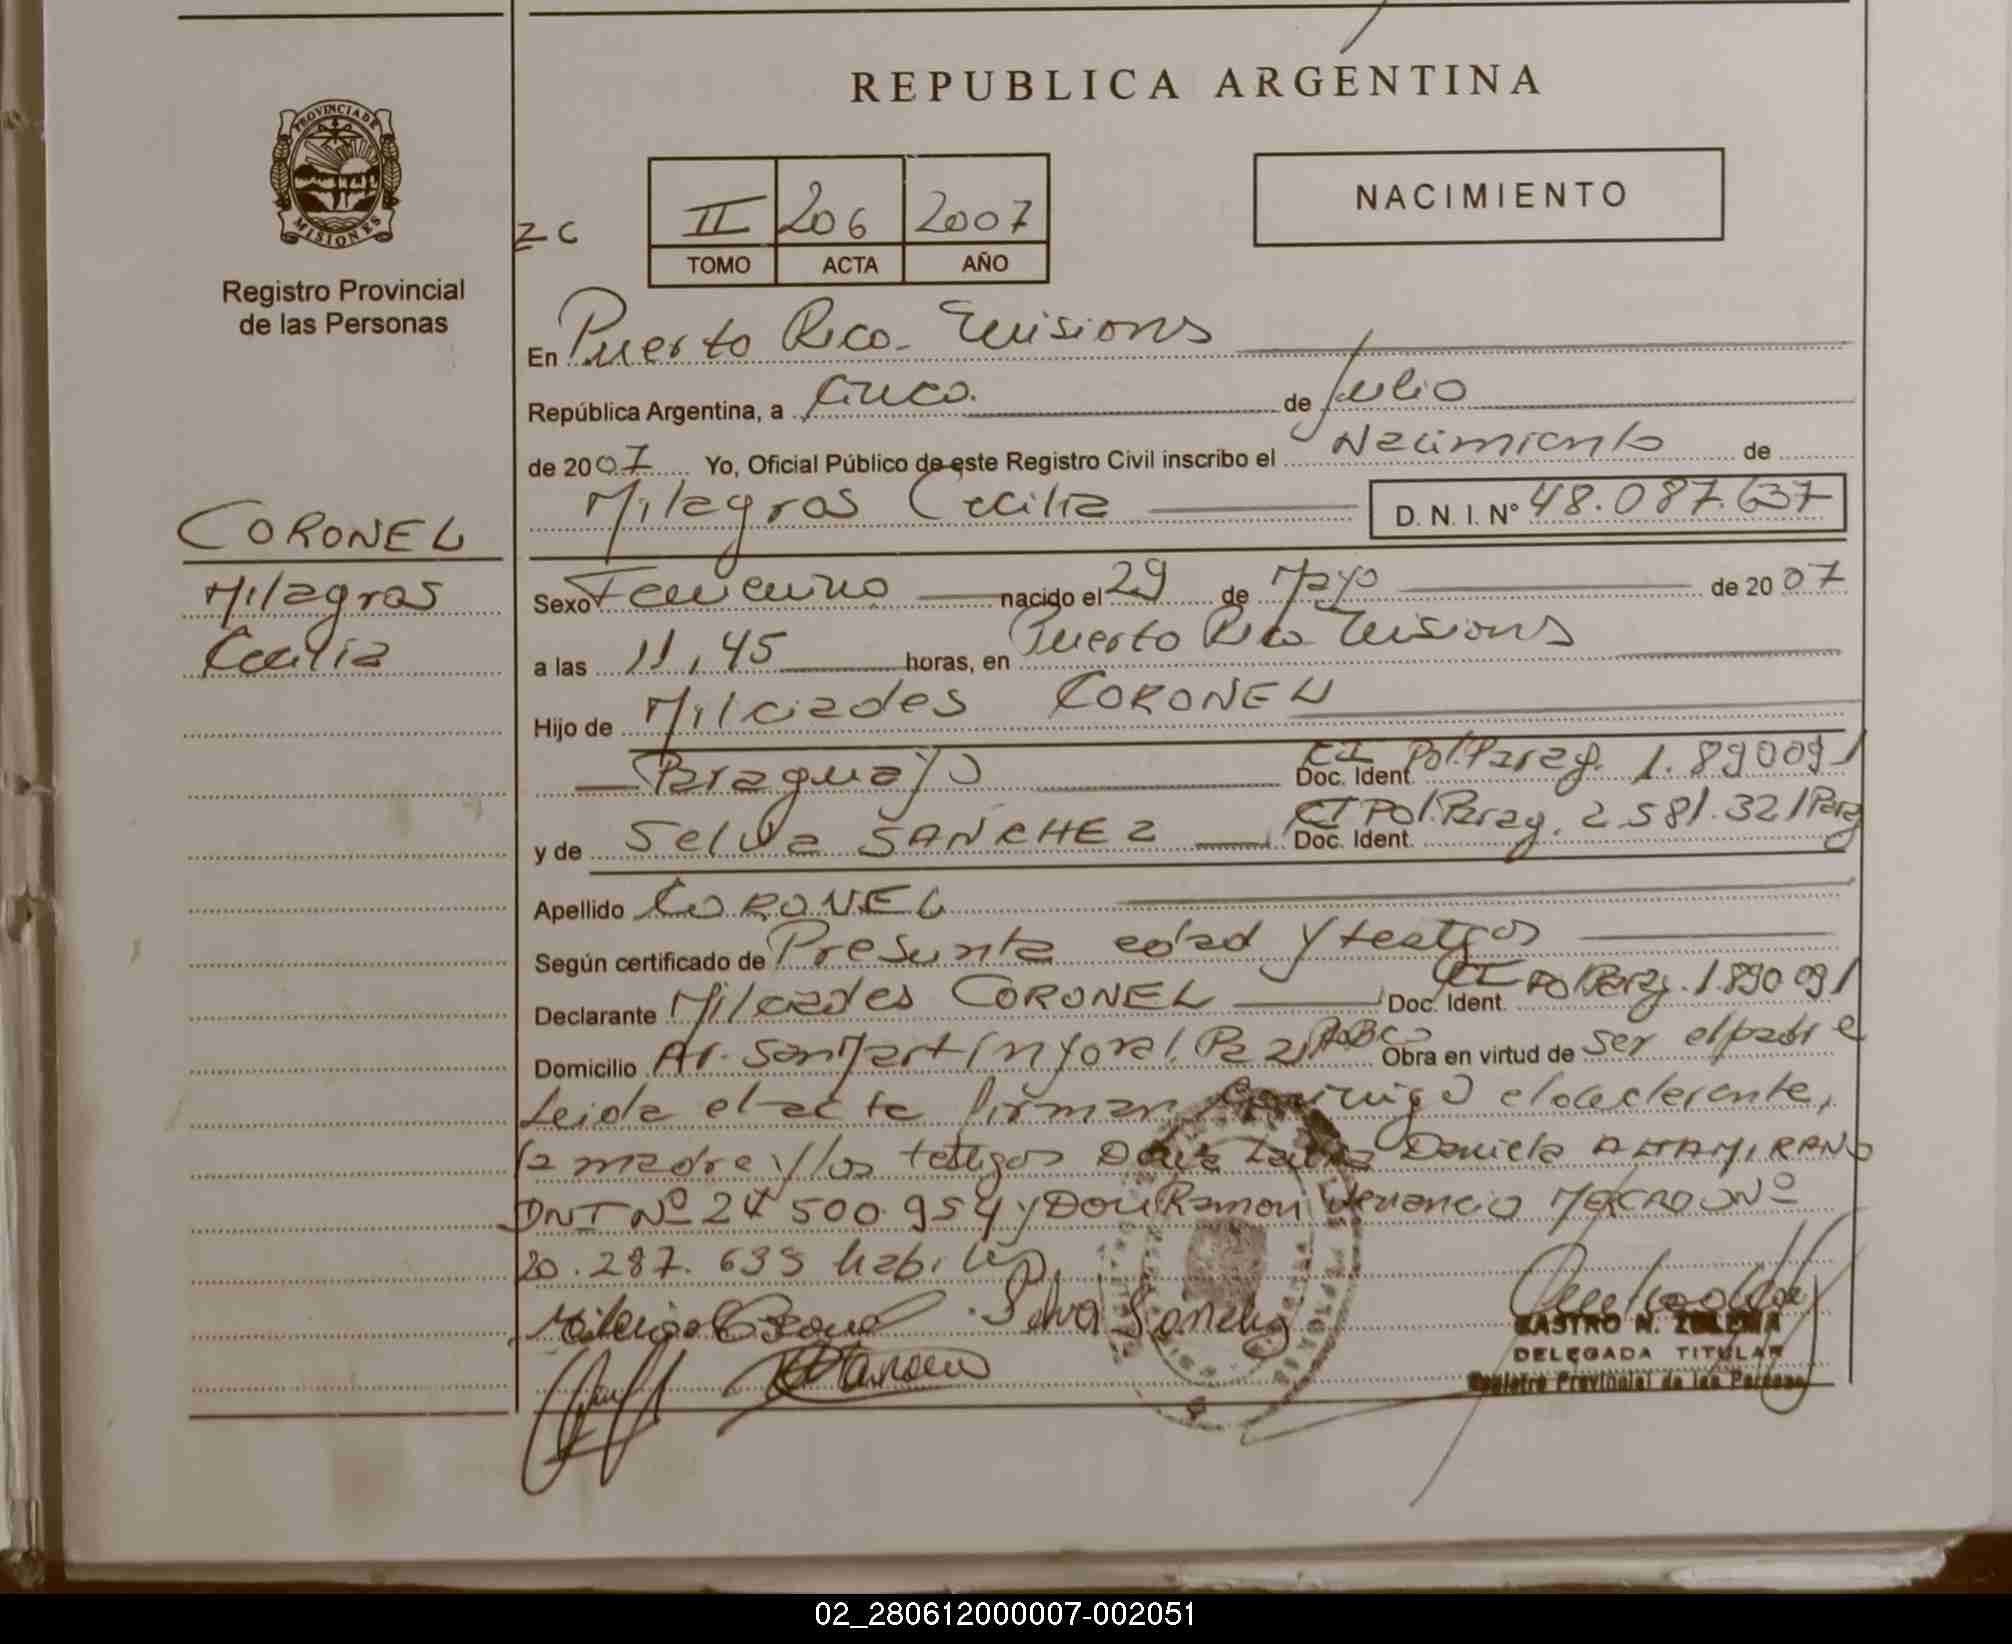 REPUBLICA ARGENTINA
PROVINCIA DE
MISIONES
Registro Provincial
de las Personas
NACIMIENTO
ZC
II 206 2007
TOMO ACTA AÑO
En Puerto Rico - Misiones
República Argentina, a Cinco. de Julio
de 2007 Yo, Oficial Público de este Registro Civil inscribo el Nacimiento de
Milagros Cecilia D. N. I. Nº 48.087.637
CORONEL
Milagros
Cecilia
Sexo Femenino nacido el 29 de Mayo de 2007
a las 11,45 horas, en Puerto Rico Misiones
Hijo de Milciades CORONEL
Paraguayo Doc. Ident. CI Pol. Parag. 1.890091
y de Selva SANCHEZ Doc. Ident. CI Pol. Parag. 2.581.321 Parag
Apellido CORONEL
Según certificado de Presunta edad y testigos
Declarante Milciades CORONEL Doc. Ident. CI Pol Parag. 1.890.091
Domicilio Av. San Martin y Gral. Paz Obra en virtud de ser el padre
Leida el acta firman conmigo el declarante,
la madre y los testigos Doña Daniela ALTAMIRANO
DNI Nº 24 500.954 y Don Ramon Venancio Nº
20.287.635 habiles
Selva Sanchez
CASTRO N. ZULEMA
DELEGADA TITULAR
Registro Provincial de las Personas
02_280612000007-002051